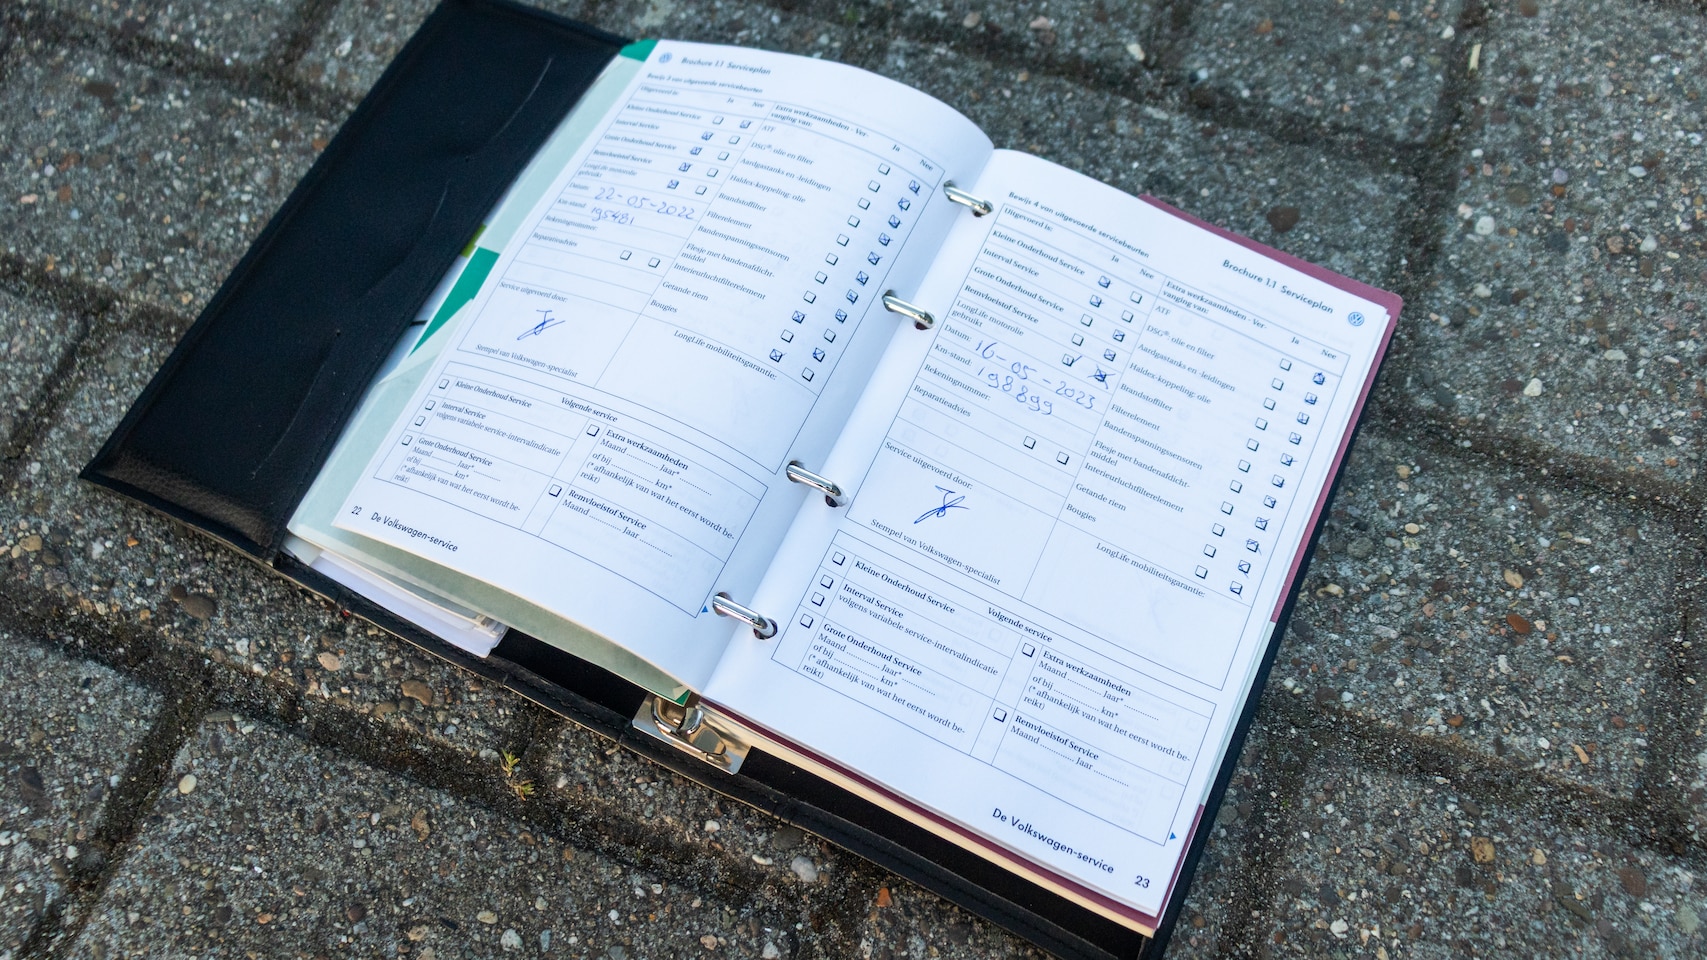 Brochure 1.1 Serviceplan
Bewijs 3 van uitgevoerde servicebeurten
Uitgevoerd is:
Ja
Nee
Kleine Onderhoud Service
Interval Service
Grote Onderhoud Service
Remvloeistof Service
LongLife motorolie
gebruikt
Datum: 22-05-2022
Km-stand: 195481
Rekeningnummer:
Reparatieadvies
Service uitgevoerd door:
Stempel van Volkswagen-specialist
Extra werkzaamheden - Ver-
vanging van:
Ja
Nee
ATF
DSG®: olie en filter
Aardgastanks en -leidingen
Haldex-koppeling: olie
Brandstoffilter
Filterelement
Bandenspanningssensoren
Flesje met bandenafdicht-
middel
Interieurluchtfilterelement
Getande riem
Bougies
LongLife mobiliteitsgarantie:
Volgende service
Kleine Onderhoud Service
Interval Service
volgens variabele service-intervalindicatie
Grote Onderhoud Service
Maand ............ Jaar*
of bij ............ km*
(*afhankelijk van wat het eerst wordt be-
reikt)
Extra werkzaamheden
Maand ............ Jaar* ............
of bij ............ km*
(*afhankelijk van wat het eerst wordt be-
reikt)
Remvloeistof Service
Maand ............ Jaar ............
22 De Volkswagen-service
Brochure 1.1 Serviceplan
Bewijs 4 van uitgevoerde servicebeurten
Uitgevoerd is:
Ja
Nee
Kleine Onderhoud Service
Interval Service
Grote Onderhoud Service
Remvloeistof Service
LongLife motorolie
gebruikt
Datum: 16-05-2023
Km-stand: 198899
Rekeningnummer:
Reparatieadvies
Service uitgevoerd door:
Stempel van Volkswagen-specialist
Extra werkzaamheden - Ver-
vanging van:
Ja
Nee
ATF
DSG®: olie en filter
Aardgastanks en -leidingen
Haldex-koppeling: olie
Brandstoffilter
Filterelement
Bandenspanningssensoren
Flesje met bandenafdicht-
middel
Interieurluchtfilterelement
Getande riem
Bougies
LongLife mobiliteitsgarantie:
Volgende service
Kleine Onderhoud Service
Interval Service
volgens variabele service-intervalindicatie
Grote Onderhoud Service
Maand ............ Jaar* ............
of bij ............ km*
(*afhankelijk van wat het eerst wordt be-
reikt)
Extra werkzaamheden
Maand ............ Jaar* ............
of bij ............ km*
(*afhankelijk van wat het eerst wordt be-
reikt)
Remvloeistof Service
Maand ............ Jaar ............
De Volkswagen-service 23